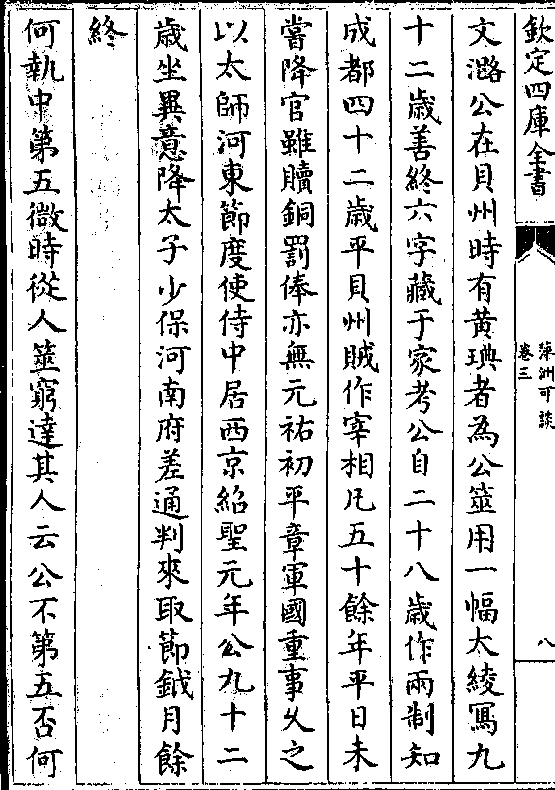 欽定四庫全書
萍洲可談
卷三
八
文潞公在貝州時有黄琠者為公筮用一幅太綾寫九
十二歳善終六字藏于家考公自二十八歳作兩制知
成都四十二歳平貝州賊作宰相凡五十餘年平日未
嘗降官雖贖銅罰俸亦無元祐初平章軍國重事乆之
以太師河東節度使侍中居西京紹聖元年公九十二
歳坐異意降太子少保河南府差通判來取節鉞月餘
終
何執中第五微時從人筮窮達其人云公不第五否何